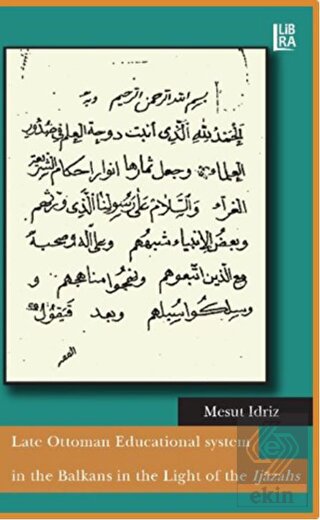 LiB
RA
بسم الله الرحمن الرحيم وبه
الحمد لله الذي أنبت دوحة العلم في صدور
العلماء وجعل ثمارها انوار احكام الشريعة
الغراء والسلام على رسولنا الذي ورثهم
وبعض الانبياء شبههم وعلى آله وصحبه
مع الذين اتبعوهم ونهجوا مناهجهم و
وسلكوا سبيلهم وبعد فيقول
الفقير
Mesut Idriz
Late Ottoman Educational system
in the Balkans in the Light of the Ijāzahs
ekin